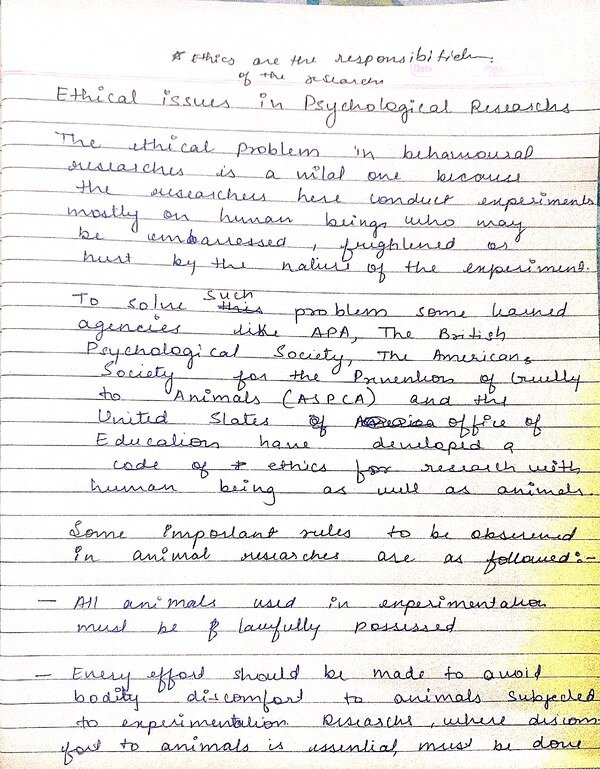 * Ethics are the responsibilities
of the research
Ethical issues in Psychological Research
The ethical problem in behavioural
researches is a vital one because
the researchers here conduct experiments
mostly on human beings who may
be embarressed, frightened or
hurt by the nature of the experiment.
To solve such problem some learned
agencies like APA, The British
Psychological Society, The American
Society for the Prevention of Cruelty
to Animals (ASPCA) and the
United States office of
Education have developed a
code of ethics for research with
human being as well as animals.
Some important rules to be observed
in animal researches are as followed:-
— All animals used in experimentation
must be lawfully possessed
— Every effort should be made to avoid
bodily discomfort to animals subjected
to experimentation Research, where discom
fort to animals is essential, must be done